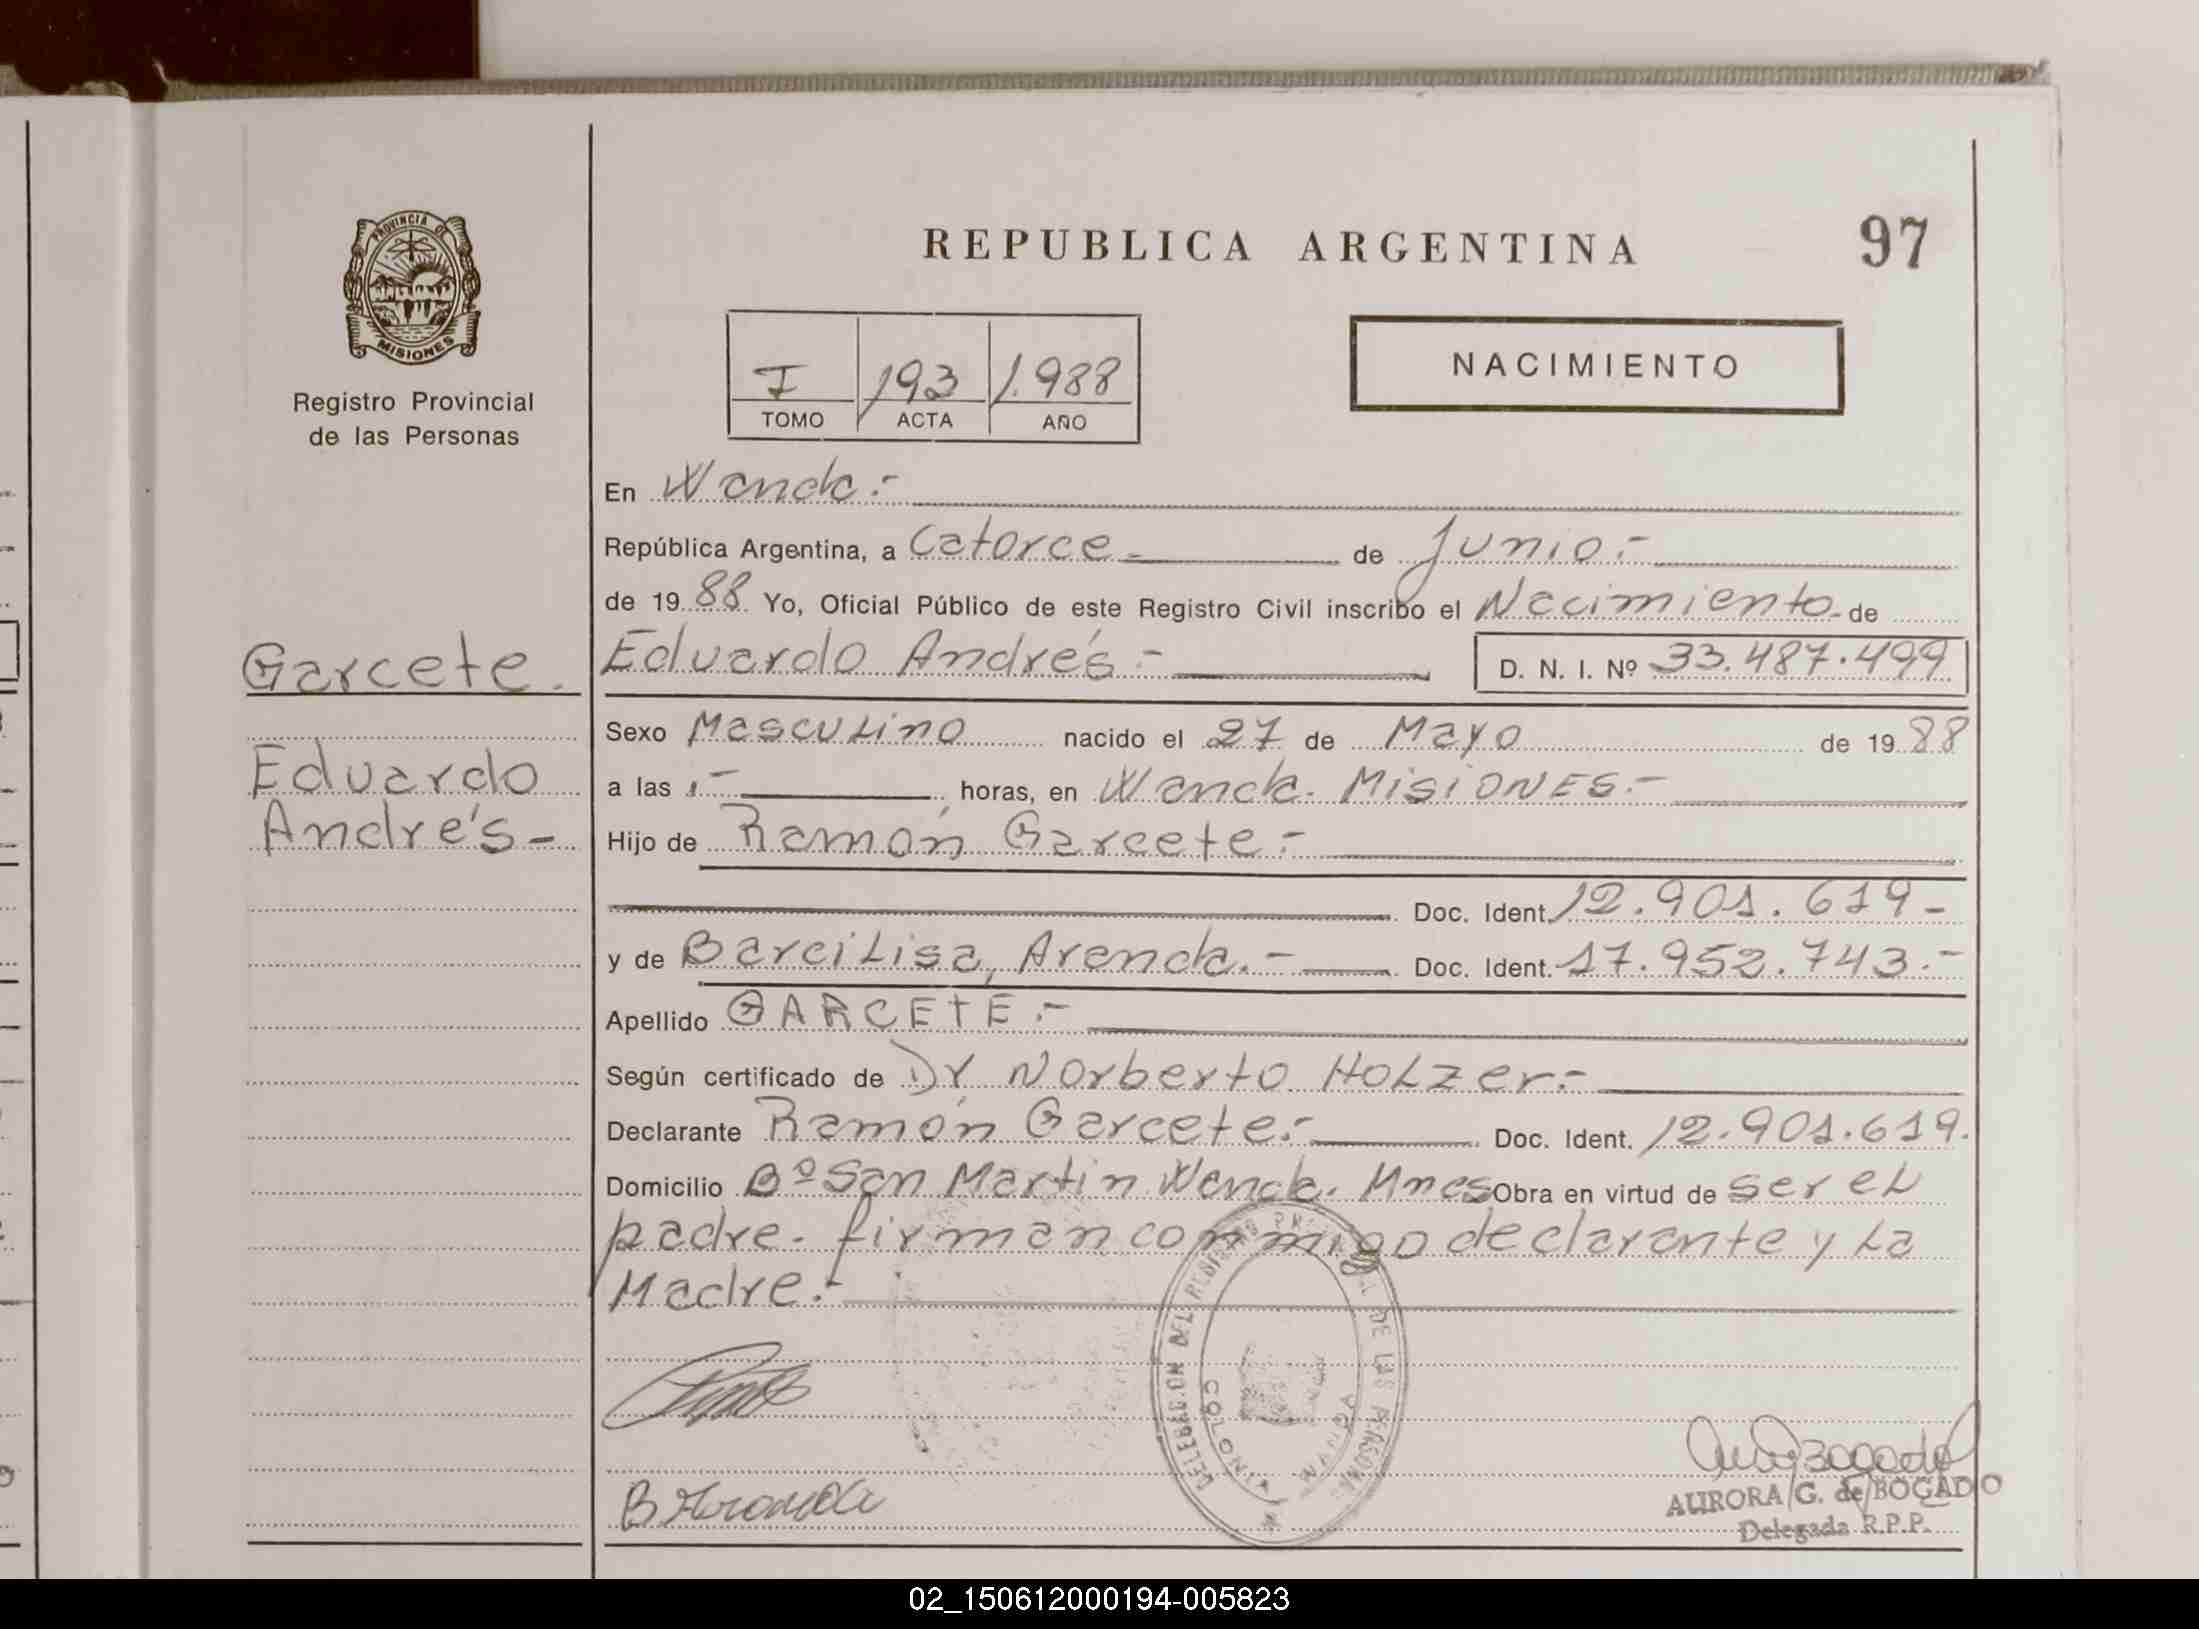 PROVINCIA DE
MISIONES
Registro Provincial
de las Personas
REPUBLICA ARGENTINA
97
I 193 1.988
TOMO ACTA AÑO
NACIMIENTO
En Wanda.-
República Argentina, a Catorce.- de Junio.-
de 1988 Yo, Oficial Público de este Registro Civil inscribo el Nacimiento de
Garcete.
Eduardo Andrés.- D. N. I. Nº 33.487.499
Sexo Masculino nacido el 27 de Mayo de 1988
Eduardo
a las horas, en Wanda. Misiones.-
Andrés-
Hijo de Ramón Garcete.-
Doc. Ident. 12.901.619-
y de Barcilisa, Aranda.- Doc. Ident. 17.952.743.-
Apellido GARCETE.-
Según certificado de Dr Norberto Holzer.-
Declarante Ramón Garcete.- Doc. Ident. 12.901.619.
Domicilio Bº San Martin Wanda. Mnes Obra en virtud de ser el
padre. firman conmigo declarante y La
Madre.-
DELEGACION DEL REGISTRO PROVINCIAL DE LAS PERSONAS
COLONIA WANDA
B Aranda
AURORA G. de BOGADO
Delegada R.P.P.
02_150612000194-005823